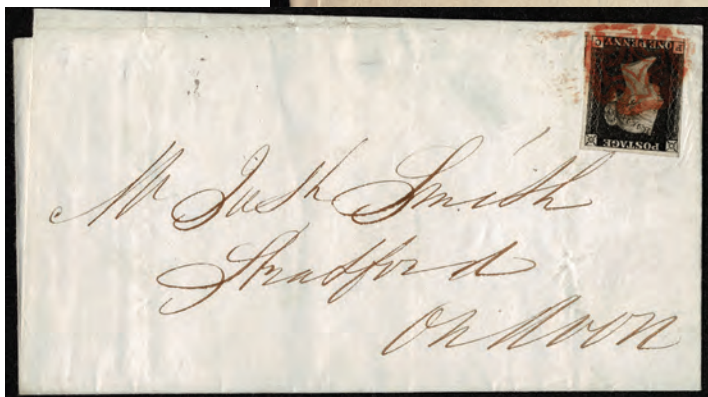 ONE PENNY
POSTAGE
Mr Josh Smith
Stradford
on Avon